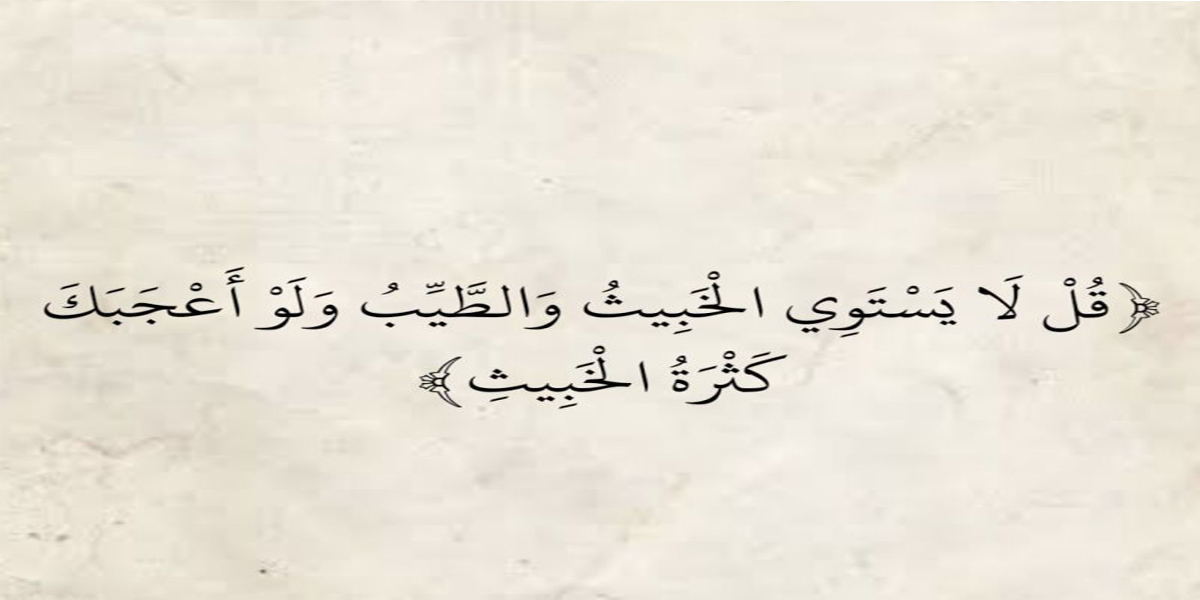 ﴿قُلْ لَا يَسْتَوِي الْخَبِيثُ وَالطَّيِّبُ وَلَوْ أَعْجَبَكَ
كَثْرَةُ الْخَبِيثِ﴾